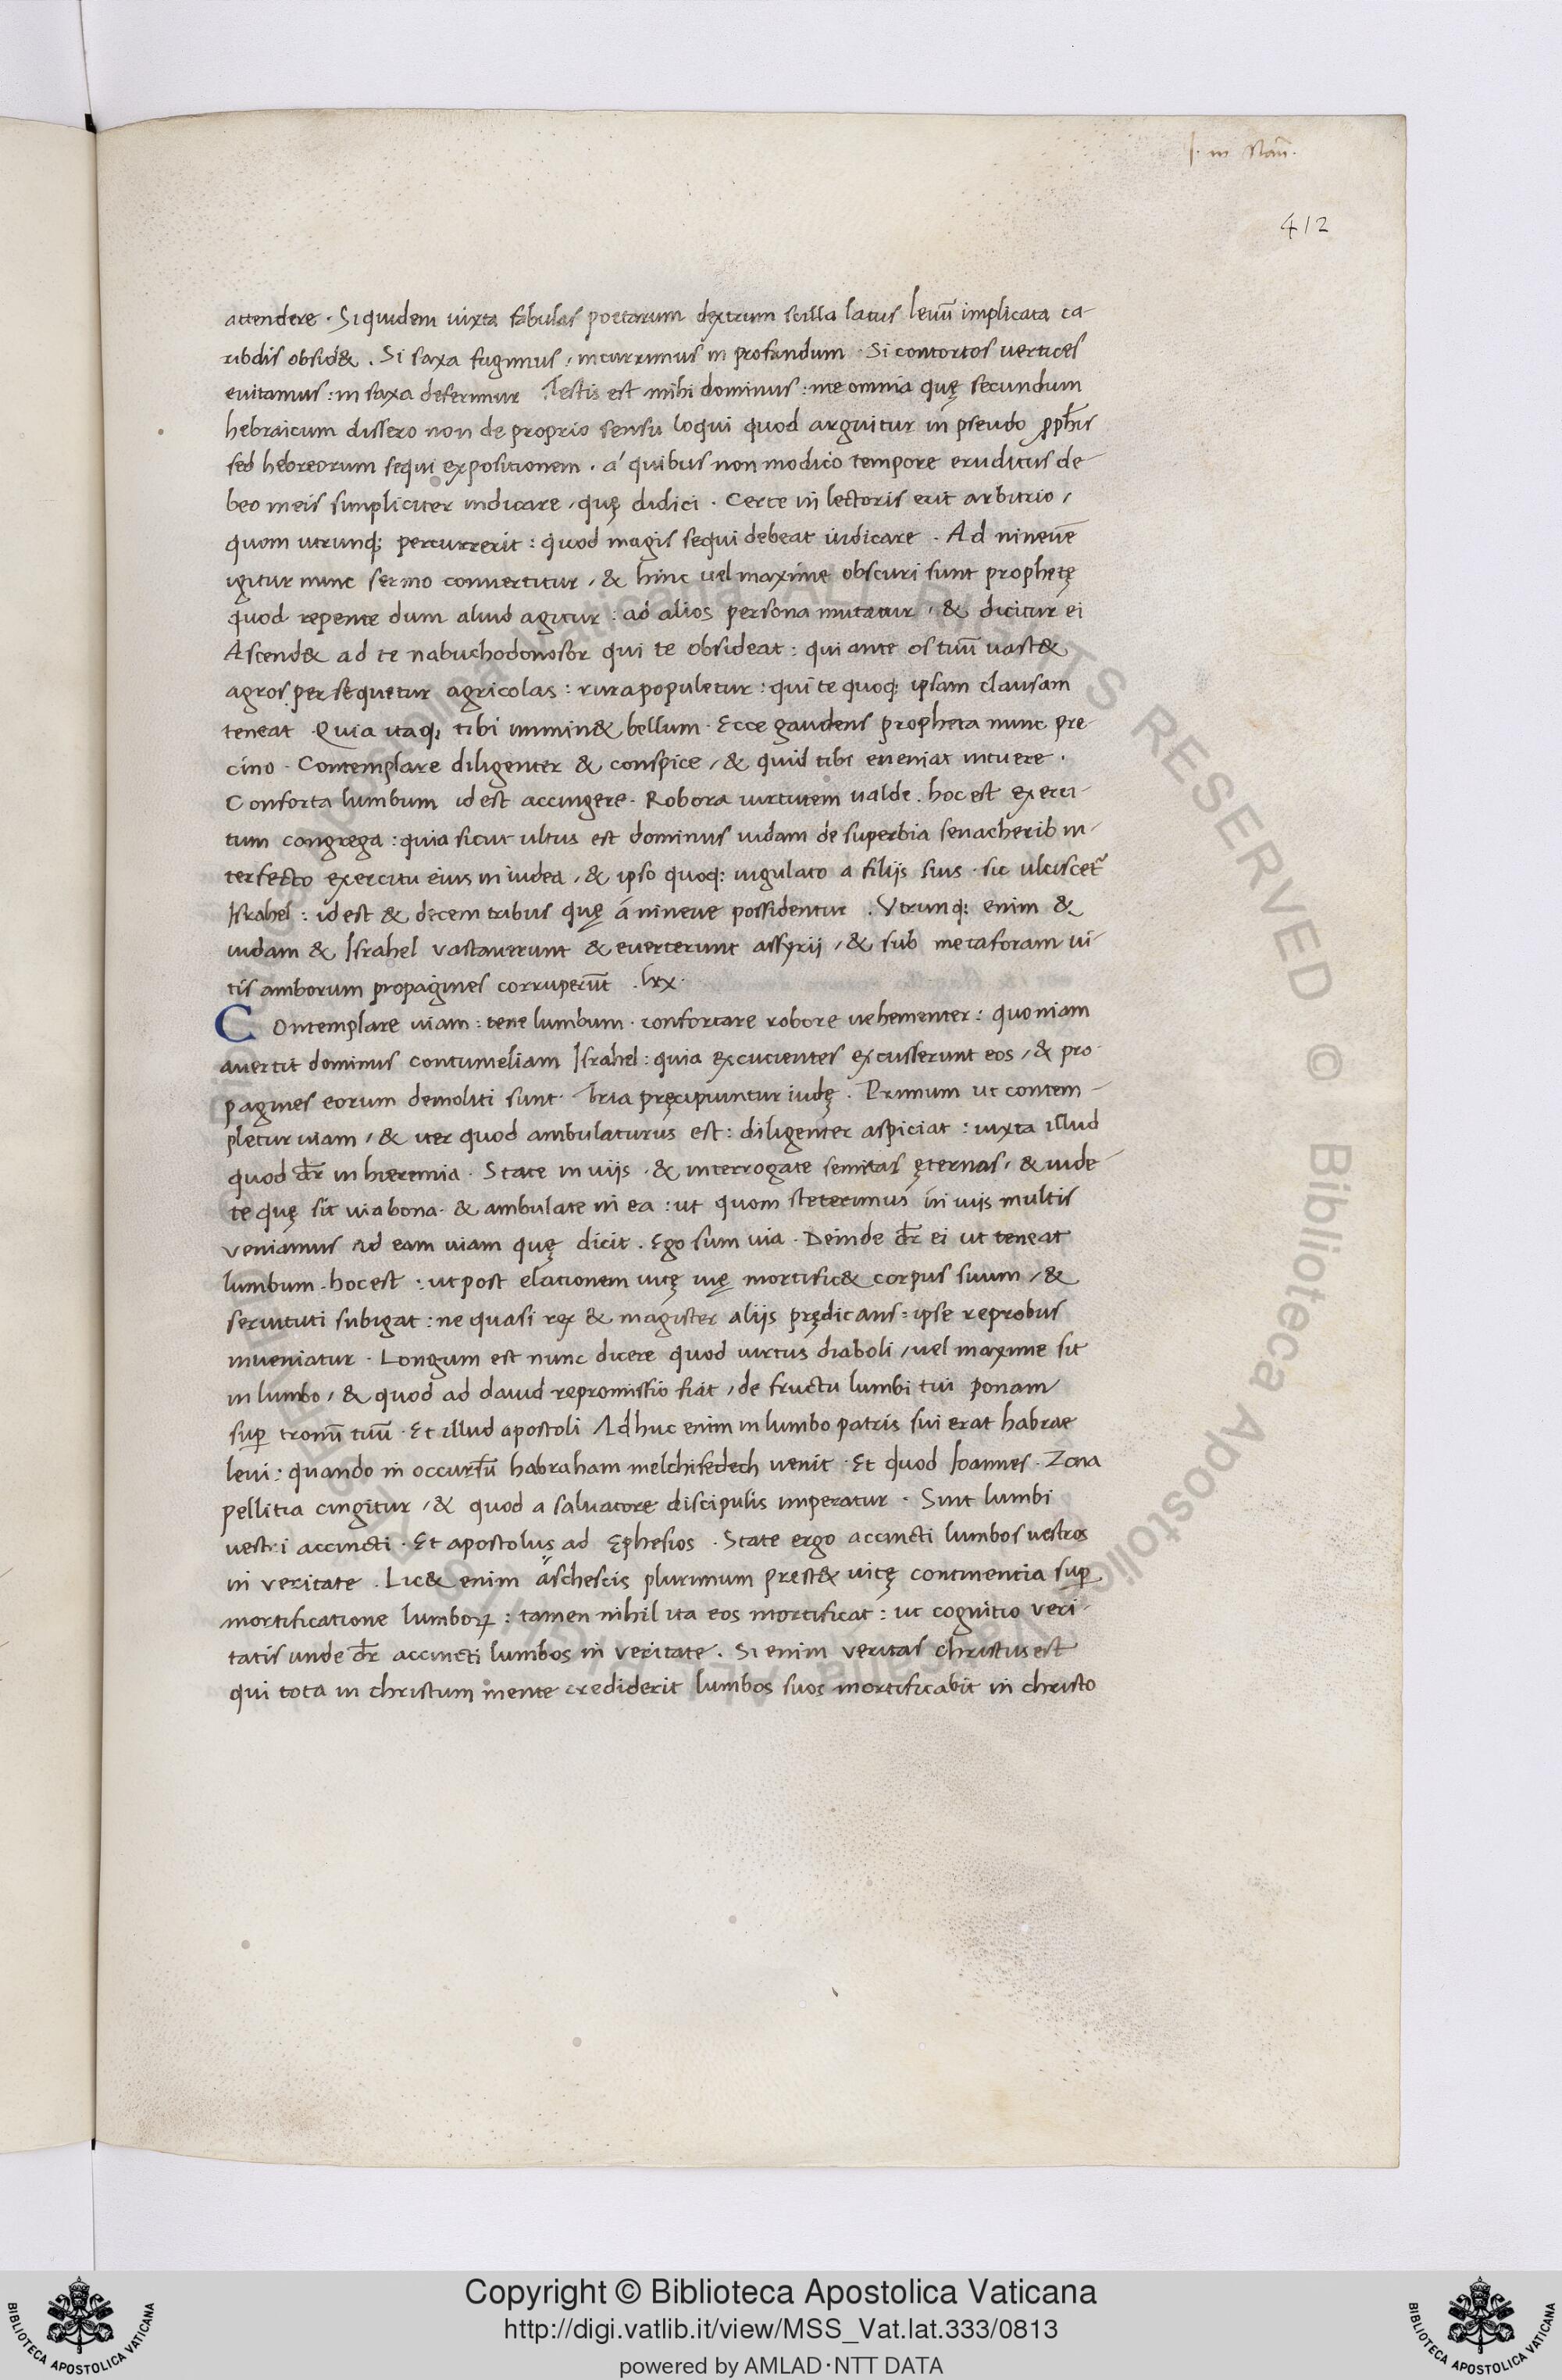 I. in Naū.
412
attendere . Siquidem iuxta fabulas poetarum dextrum scilla latus leuū implicata ca-
ribdis obsid& . Si saxa fugimus / incurrimus in profundum . Si contortos vertices
euitamus : in saxa deferimur Testis est mihi dominus : me omnia quę secundum
hebraicum dissero non de proprio sensu loqui quod arguitur in pseudo ꝓph̄is
sed hebreorum sequi expositionem . á quibus non modico tempore eruditus de-
beo meis simpliciter indicare / quę didici . Certe in lectoris erit arbitrio /
quom utrunq; percurrerit : quod magis sequi debeat iudicare . Ad nineuē
igitur nunc sermo conuertitur / & hinc uel maxime obscuri sunt prophetę
quod repente dum aliud agitur : ad alios persona mutatur / & dicitur ei
Ascend& ad te nabuchodonosor qui te obsideat : qui ante os tuū uast&
agros persequetur agricolas : rura populetur : qui te quoq; ipsam clausam
teneat . Quia itaq; tibi immin& bellum . Ecce gaudens propheta nunc pre-
cino . Contemplare diligenter & conspice / & quid tibi eueniat intuere .
Conforta lumbum id est accingere . Robora uirtutem ualde . hoc est exerci-
tum congrega : quia sicut ultus est dominus iudam de superbia senacherib in-
terfecto exercitu eius in iudea / & ipso quoq; iugulato a filijs suis . sic ulciscet᷑
Israhel : id est & decem tribus quę á nineue possidentur . Vtrunq; enim &
iudam & Israhel vastauerunt & euerterunt assyrij / & sub metaforam ui-
tis amborum propagines corruperūt . lxx .
COntemplare uiam : tene lumbum . confortare robore uehementer : quoniam
auertit dominus contumeliam Israhel : quia excutientes excusserunt eos / & pro-
pagines eorum demoliti sunt . Tria pręcipiuntur iudę . Primum ut contem-
pletur uiam / & iter quod ambulaturus est : diligenter aspiciat : iuxta illud
quod dr̄ in hieremia . State in uijs . & interrogate semitas ęternas / & uide-
te quę sit uia bona . & ambulate in ea : ut quom steterimus in uiis multis
veniamus ad eam uiam quę dicit . Ego sum uia . Deinde dr̄ ei ut teneat
lumbum . hoc est : ut post elationem uitę uię mortific& corpus suum / &
seruituti subigat : ne quasi rex & magister aliis prędicans : ipse reprobus
inueniatur . Longum est nunc dicere quod uirtus diaboli / uel maxime sit
in lumbo / & quod ad dauid repromissio fiat / de fructu lumbi tui ponam
suꝑ tronū tuū . Et illud apostoli Adhuc enim in lumbo patris sui erat habrae
leui : quando in occursū habraham melchisedech uenit . Et quod Ioannes . Zona
pellitia cingitur / & quod a saluatore discipulis imperatur . Sint lumbi
uestri accincti . Et apostolus ad Ephesios . State ergo accincti lumbos uestros
in veritate . Lic& enim aschesis plurimum prest& uitę continentia suꝑ
mortificatione lumboꝝ : tamen nihil ita eos mortificat : ut cognitio veri-
tatis unde dr̄ accincti lumbos in veritate . Si enim veritas christus est
qui tota in christum mente crediderit lumbos suos mortificabit in christo
Copyright © Biblioteca Apostolica Vaticana
http://digi.vatlib.it/view/MSS_Vat.lat.333/0813
powered by AMLAD·NTT DATA